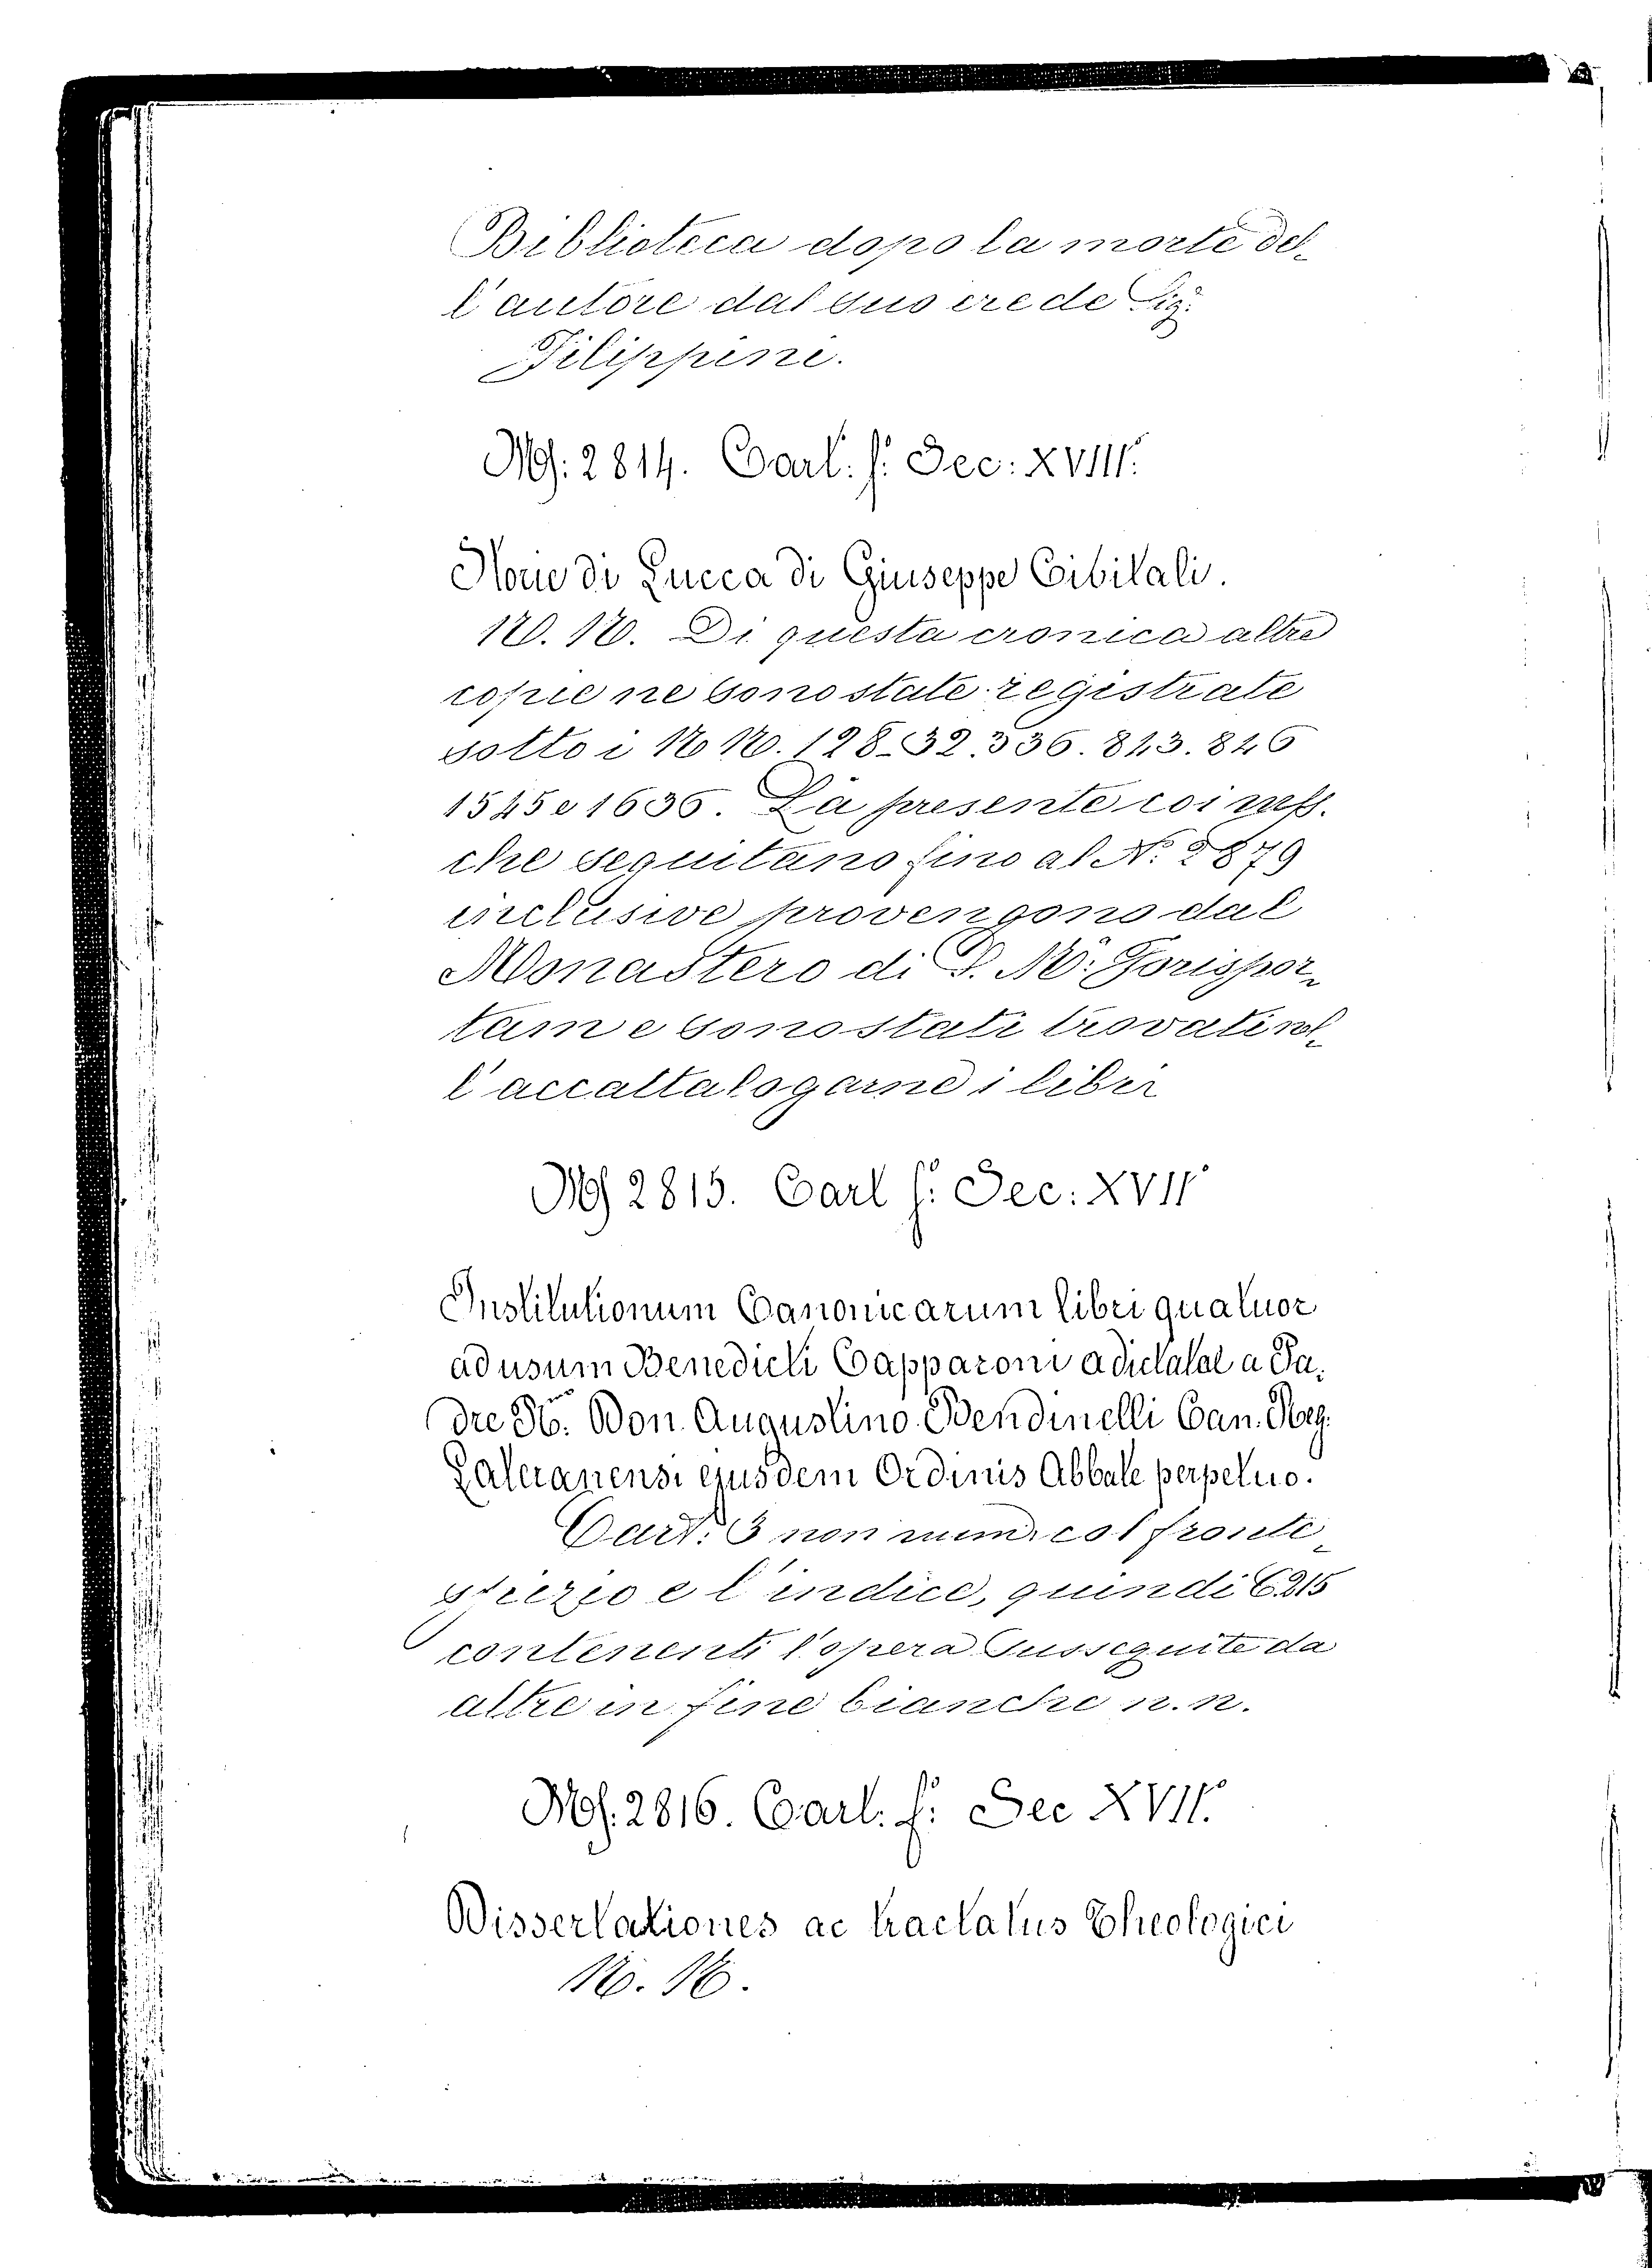 Biblioteca dopo la morte del-
l'autore dal suo erede Sig.r
Filippini.
Ms. 2814. Cart. f.o Sec: XVIII.
Storie di Lucca di Giuseppe Cibitali.
N. N. Di questa cronica altre
copie ne sono state registrate
sotto i NN. 128-32. 336. 813. 846
1545 e 1636. La presente coi mss.
che seguitano fino al N.o 2879
inclusive provengono dal
Monastero di S. M.a Forispor-
tam e sono stati trovati nel-
l'accattalogarne i libri
Ms 2815. Cart f.o Sec: XVII
Institutionum Canonicarum libri quatuor
ad usum Benedicti Capparoni a dictatal a Pa-
dre R.mo Don Augustino Bendinelli Can. Reg.
Lateranensi ejusdem Ordinis Abbate perpetuo.
Cart. 3 non num. col fronte-
spizio e l'indice, quindi C. 215
contenenti l'opera susseguite da
altre in fine bianche n. n.
Ms. 2816. Cart. f.o Sec XVII.
Dissertationes ac tractatus Theologici
N. N.